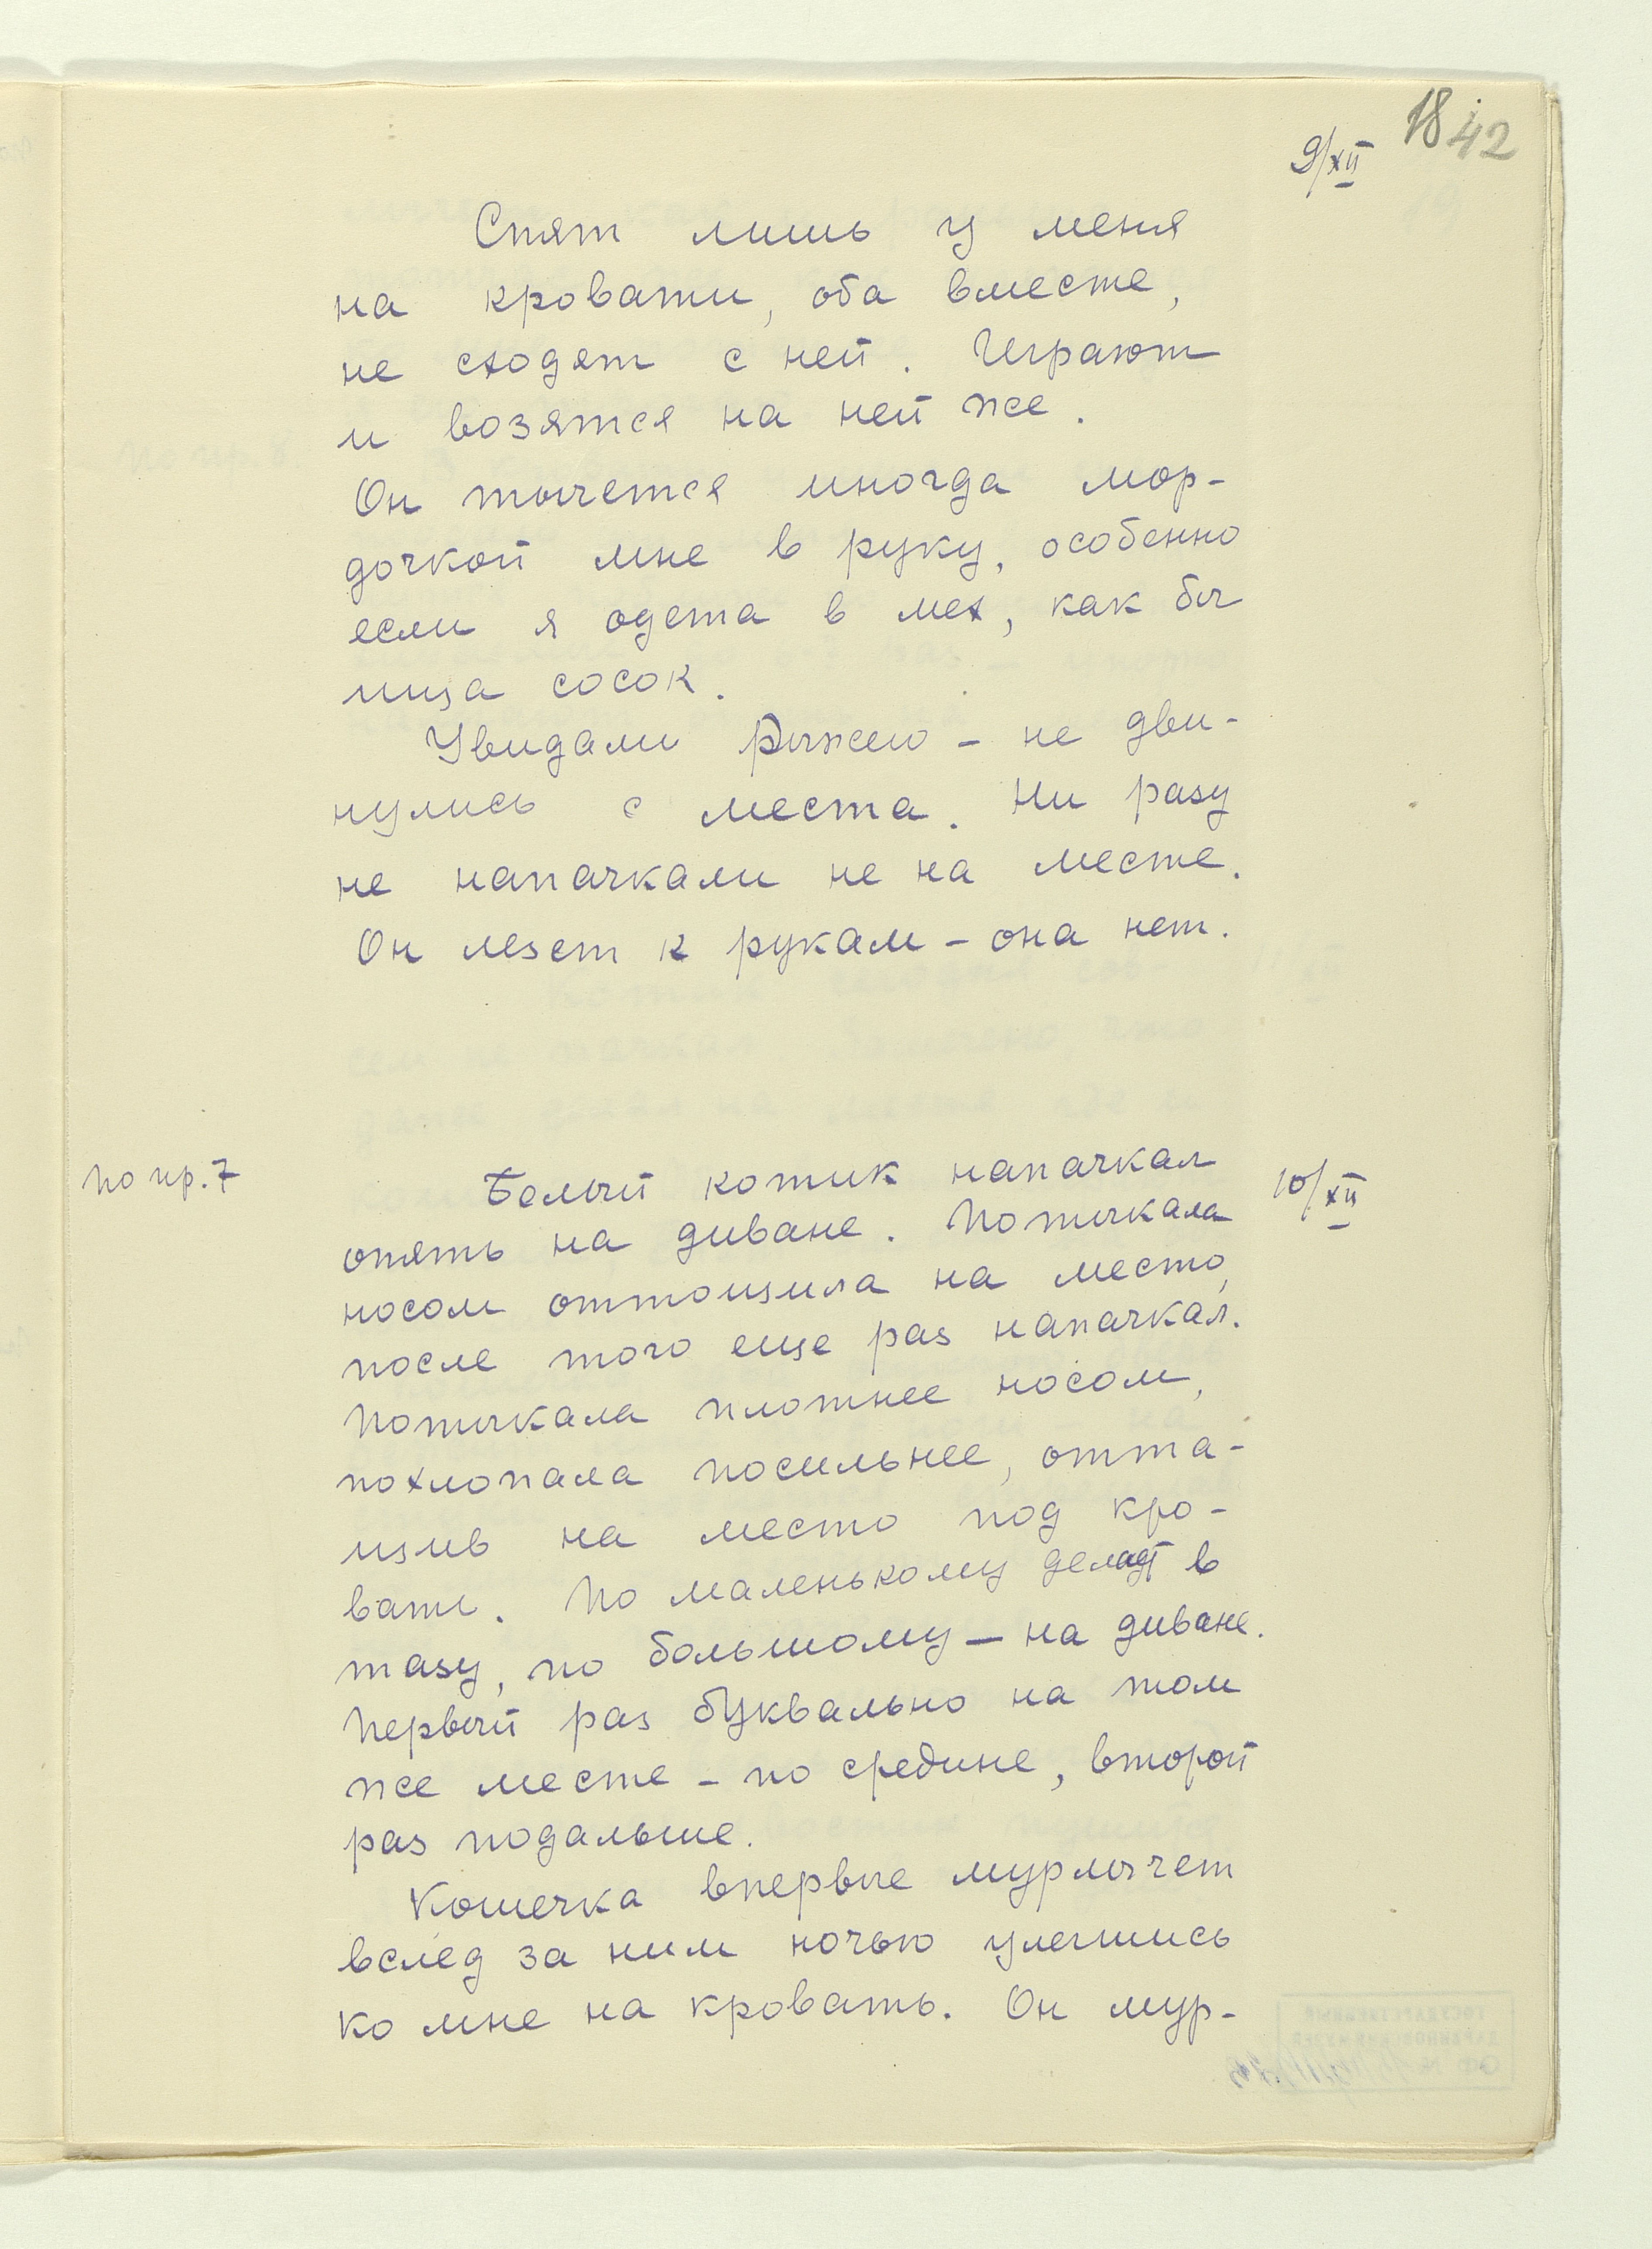 18 42
9/XII
Спят лишь у меня
на кровати, оба вместе,
не сходят с ней. Играют
и возятся на ней же.
Он тычется иногда мор-
дочкой мне в руку, особенно
если я одета в мех, как бы
ища сосок.
Увидали Рыжею - не дви-
нулись с места. Ни разу
не напачкали не на месте.
Он лезет к рукам - она нет.
по пр. 7
10/XII
Белый котик напачкал
опять на диване. Потыкала
носом оттащила на место,
после того еще раз напачкал.
Потыкала плотнее носом,
похлопала посильнее, отта-
щив на место под кро-
вать. По маленькому делает в
тазу, по большому — на диване.
Первый раз буквально на том
же месте - по средине, второй
раз подальше.
Кошечка впервые мурлычет
вслед за ним ночью улегшись
ко мне на кровать. Он мур-